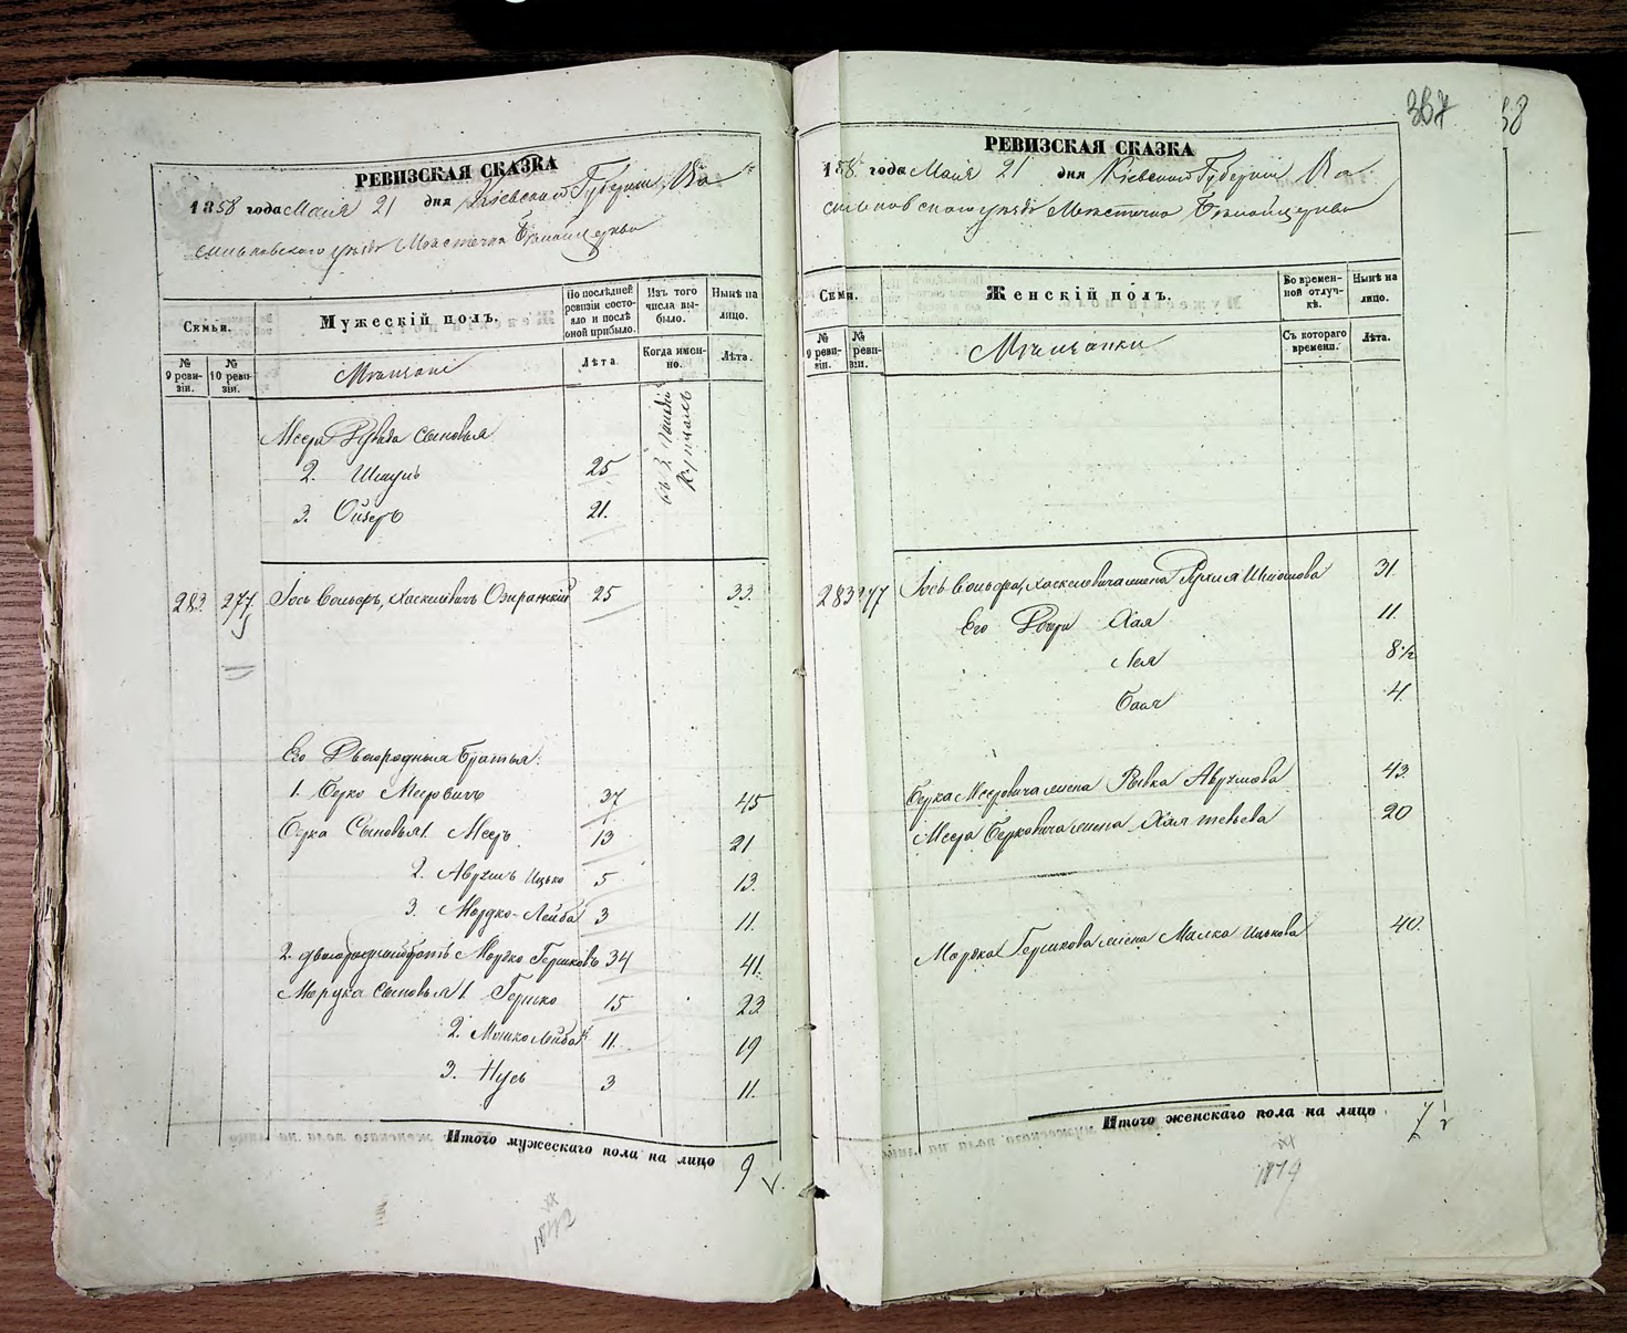 367
38
РЕВИЗСКАЯ СКАЗКА
1858 года Маія 21 дня Кіевской Губерніи, Ва
сильковскаго уезда Местечка
Семьи.
Мужескій полъ.
По последней ревизіи состояло и после оной прибыло.
Изъ того числа выбыло.
Ныне на лицо.
№ 9 ревизіи.
№ 10 ревизіи.
Мещане
Лета.
Когда именно.
Лета.
Меера сыновья
2. Шмуль 25
3. Ойзеръ 21.
283. 277 Іось Вольфъ, Хаскелевичъ 25 33.
Его Двоюродныя Братья:
1. Берко Мееровичъ 37 45
Берка Сыновья 1. Мееръ 13 21
2. Аврумъ Ицько 5 13.
3. Мордко-Лейба 3 11.
2. двоюродный братъ Мордко Гершковъ 34 41.
Мордка сыновья 1. Гершко 15 23
2. Мошко Лейба 11. 19
3. Нусь 3 11.
Итого мужескаго пола на лицо 9
РЕВИЗСКАЯ СКАЗКА
1858 года Маія 21 дня Кіевской Губерніи Ва
сильковскаго уезда Местечка
Семьи.
Женскій полъ.
Во временной отлучкѣ.
Нынѣ на лицо.
№ 9 ревизіи.
№ ревизіи.
Мещанки
Съ котораго времени.
Лѣта.
283 277 Іось Вольфа, Хаскелевича жена 31.
Его Дочери Хая 11.
Лея 8 1/2
Бася 4.
Берка Мееровича жена Рывка Аврумова 43.
Меера Берковича жена Хая 20
Мордка Гершкова жена Малка Ицькова 40.
Итого женскаго пола на лицо 7